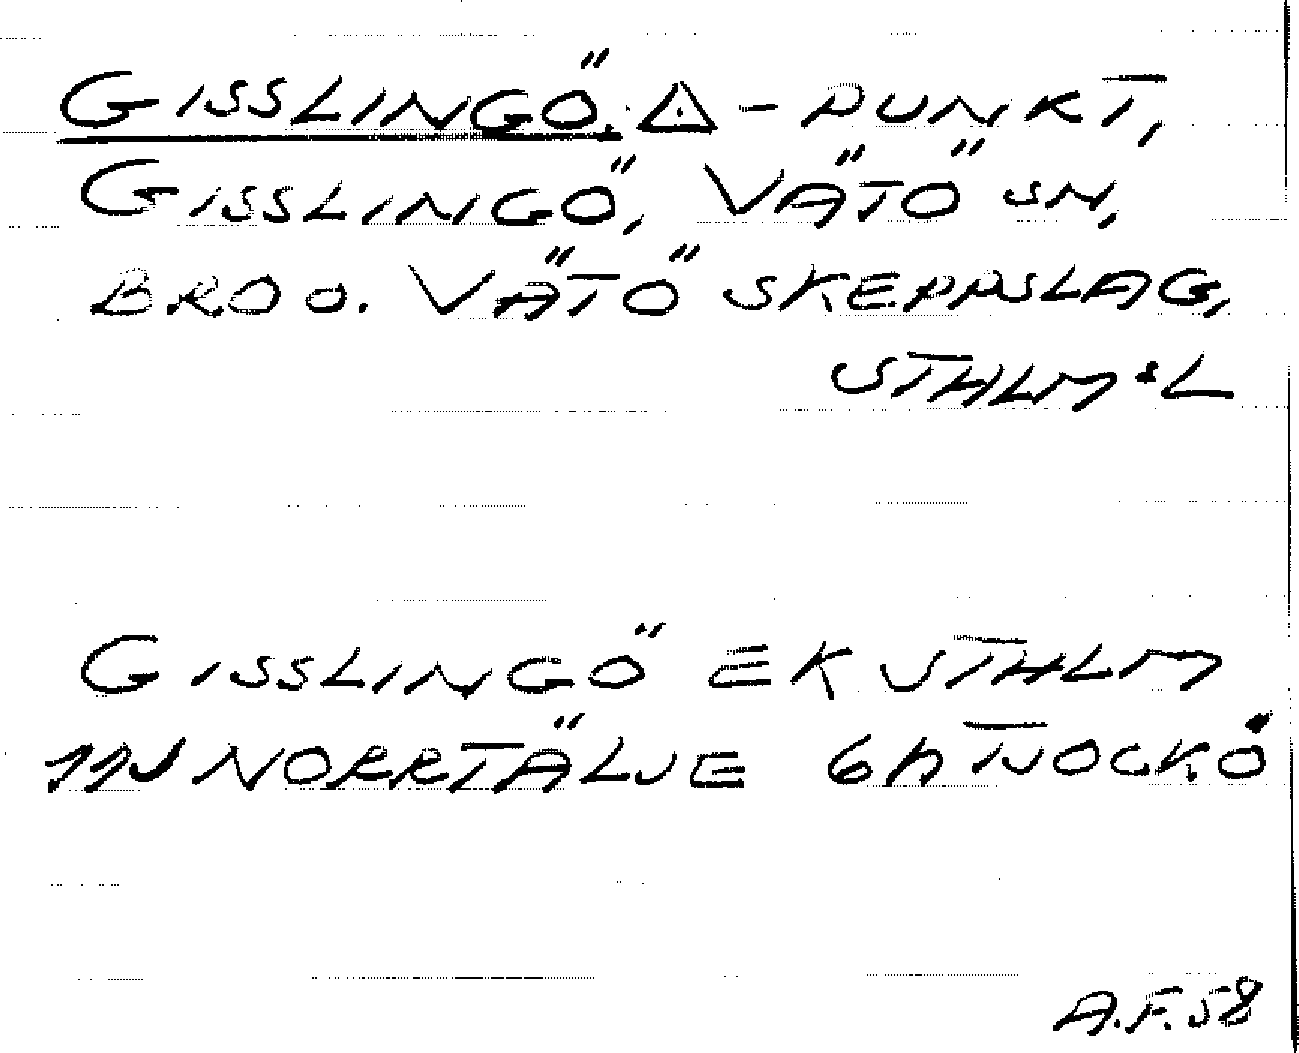 GISSLINGÖ. △ - PUNKT,
GISSLINGÖ, VÄTÖ SN,
BRO O. VÄTÖ SKEPPSLAG,
STHLM:L
GISSLINGÖ EK STHLM
11J NORRTÄLJE 6h TJOCKÖ
A.F. 58